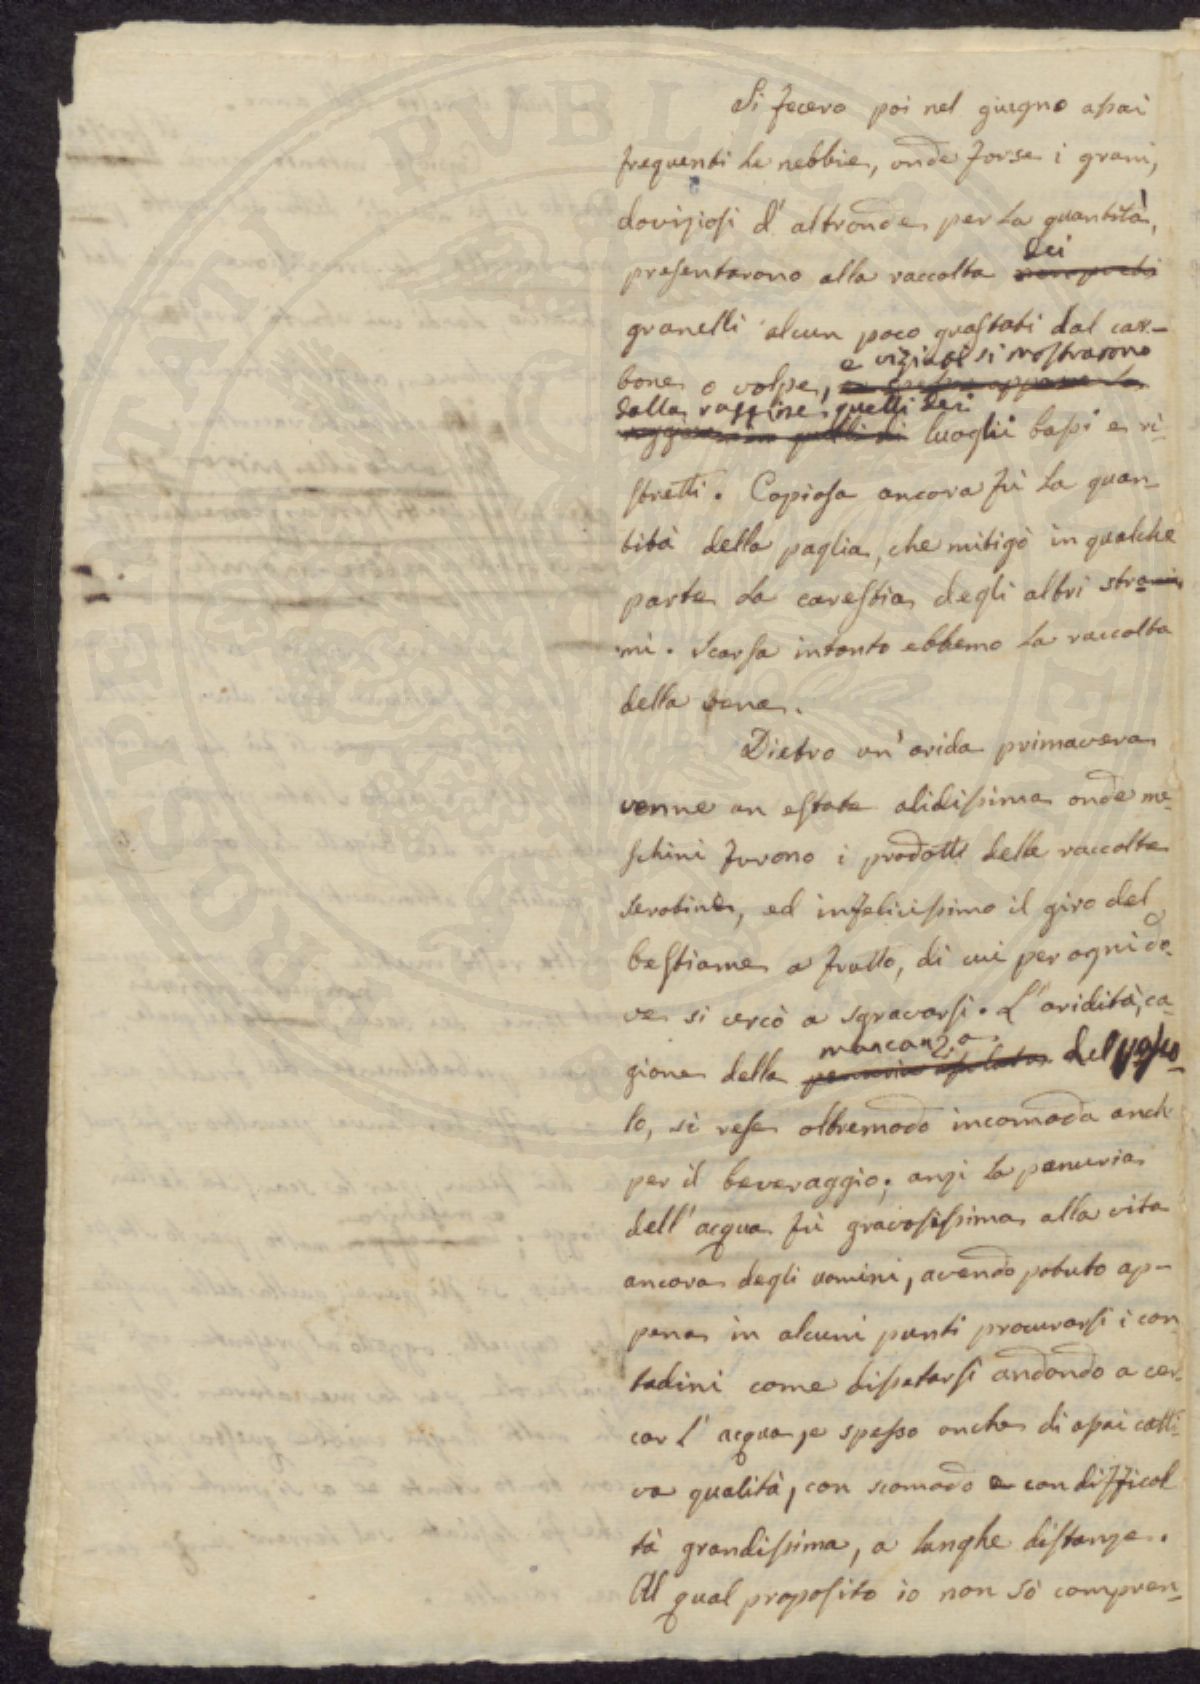 Si fecero poi nel giugno assai
frequenti le nebbie, onde forse i grani,
doviziosi d'altronde per la quantità,
dei
presentarono alla raccolta
granelli alcun poco guastati dal car-
e viziati si mostrarono
bone o volpe,
dalla ruggine quelli dei
luoghi bassi e ri-
stretti. Copiosa ancora fù la quan-
tità della paglia, che mitigò in qualche
parte la carestia degli altri stra-
mi. Scarsa intanto ebbemo la raccolta
della vena.
Dietro un'arida primavera
venne un estate alidissima onde me-
schini furono i prodotti delle raccolte
serotine, ed infelicissimo il giro del
bestiame a frutto, di cui per ogni do-
ve si cercò a sgravarsi. L'aridità, ca-
mancanza
gione della penuria assoluta del pasco-
lo, si rese oltremodo incomoda anch
per il beveraggio; anzi la penuria
dell'acqua fù gravosissima alla vita
ancora degli uomini, avendo potuto ap-
pena in alcuni punti procurarsi i con-
tadini come dissetarsi andando a cer-
car l'acqua, e spesso anche di assai catti-
va qualità, con scomodo e con difficol
tà grandissima, a lunghe distanze.
Al qual proposito io non sò compren-